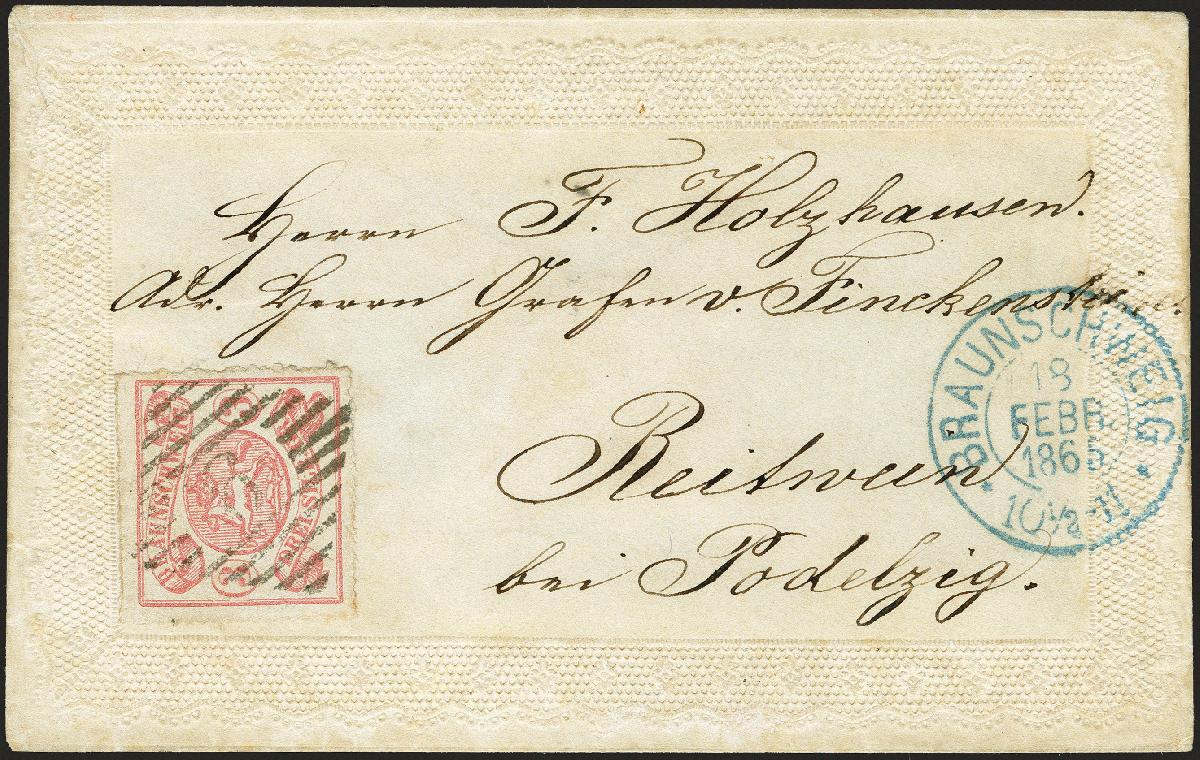 Herrn F. Holzhausen.
Adr. Herrn Grafen v. Finckenstein.
Reitwein
bei Podelzig.
BRAUNSCHWEIG
18
FEBR
1865
10½-11
3